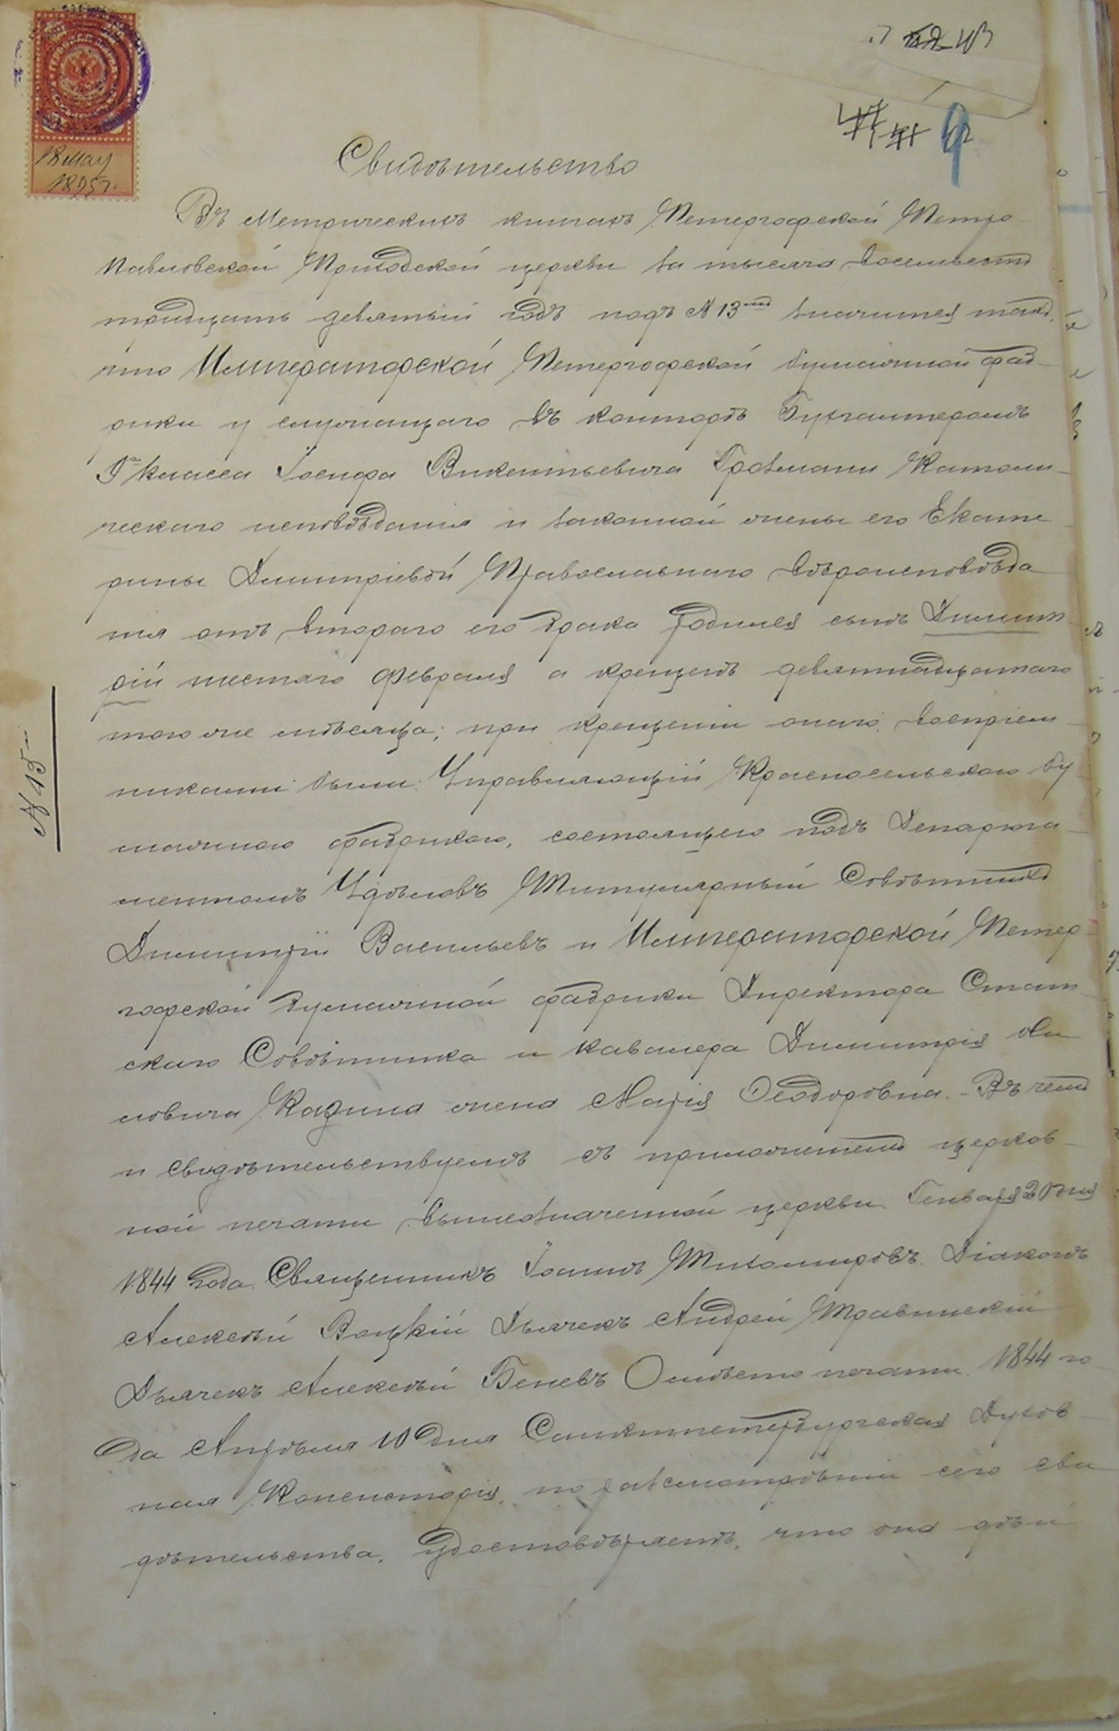 18 Мая
1895 г.
9
Свидѣтельство
Въ Метрическихъ книгахъ Петергофской Петро
павловской Приходской церкви за тысяча восемьсотъ
тридцать девятый годъ подъ № 13мъ значится такъ,
что Императорской Петергофской бумажной фаб-
рики у служащаго въ конторѣ Бухгалтеромъ
класса Іосифа Викентьевича Католи-
ческаго исповѣданія и законной жены его Екате
рины Димитріевой Православнаго вѣроисповѣда
нія отъ втораго его брака родился сынъ Димит
рій шестаго Февраля а крещенъ девятнадцатаго
того же мѣсяца; при крещеніи онаго воспріем
никами были: Управляющій Красносельскою бу
мажною фабрикою, состоящею подъ Департа
ментомъ Удѣловъ Титулярный Совѣтникъ
Димитрій Васильевъ и Императорской Петер-
гофской бумажной фабрики Директора Стат
скаго Совѣтника и кавалера Димитрія
новича жена Марія Ѳеодоровна. – Въ чемъ
и свидѣтельствуемъ съ приложеніемъ церков-
ной печати вышеозначенной церкви Генваря 20 дня
1844 года. Священникъ Іоаннъ Тихомировъ Діаконъ
Алексѣй Дьячекъ Андрей Травинскій
Дьячекъ Алексѣй Беневъ О мѣсто печати. 1844 го
да Апрѣля 10 дня Санктпетербургская Духов
ная Консисторія, по разсмотрѣніи сего сви
дѣтельства, удостовѣряетъ, что оно дѣй
№ 15